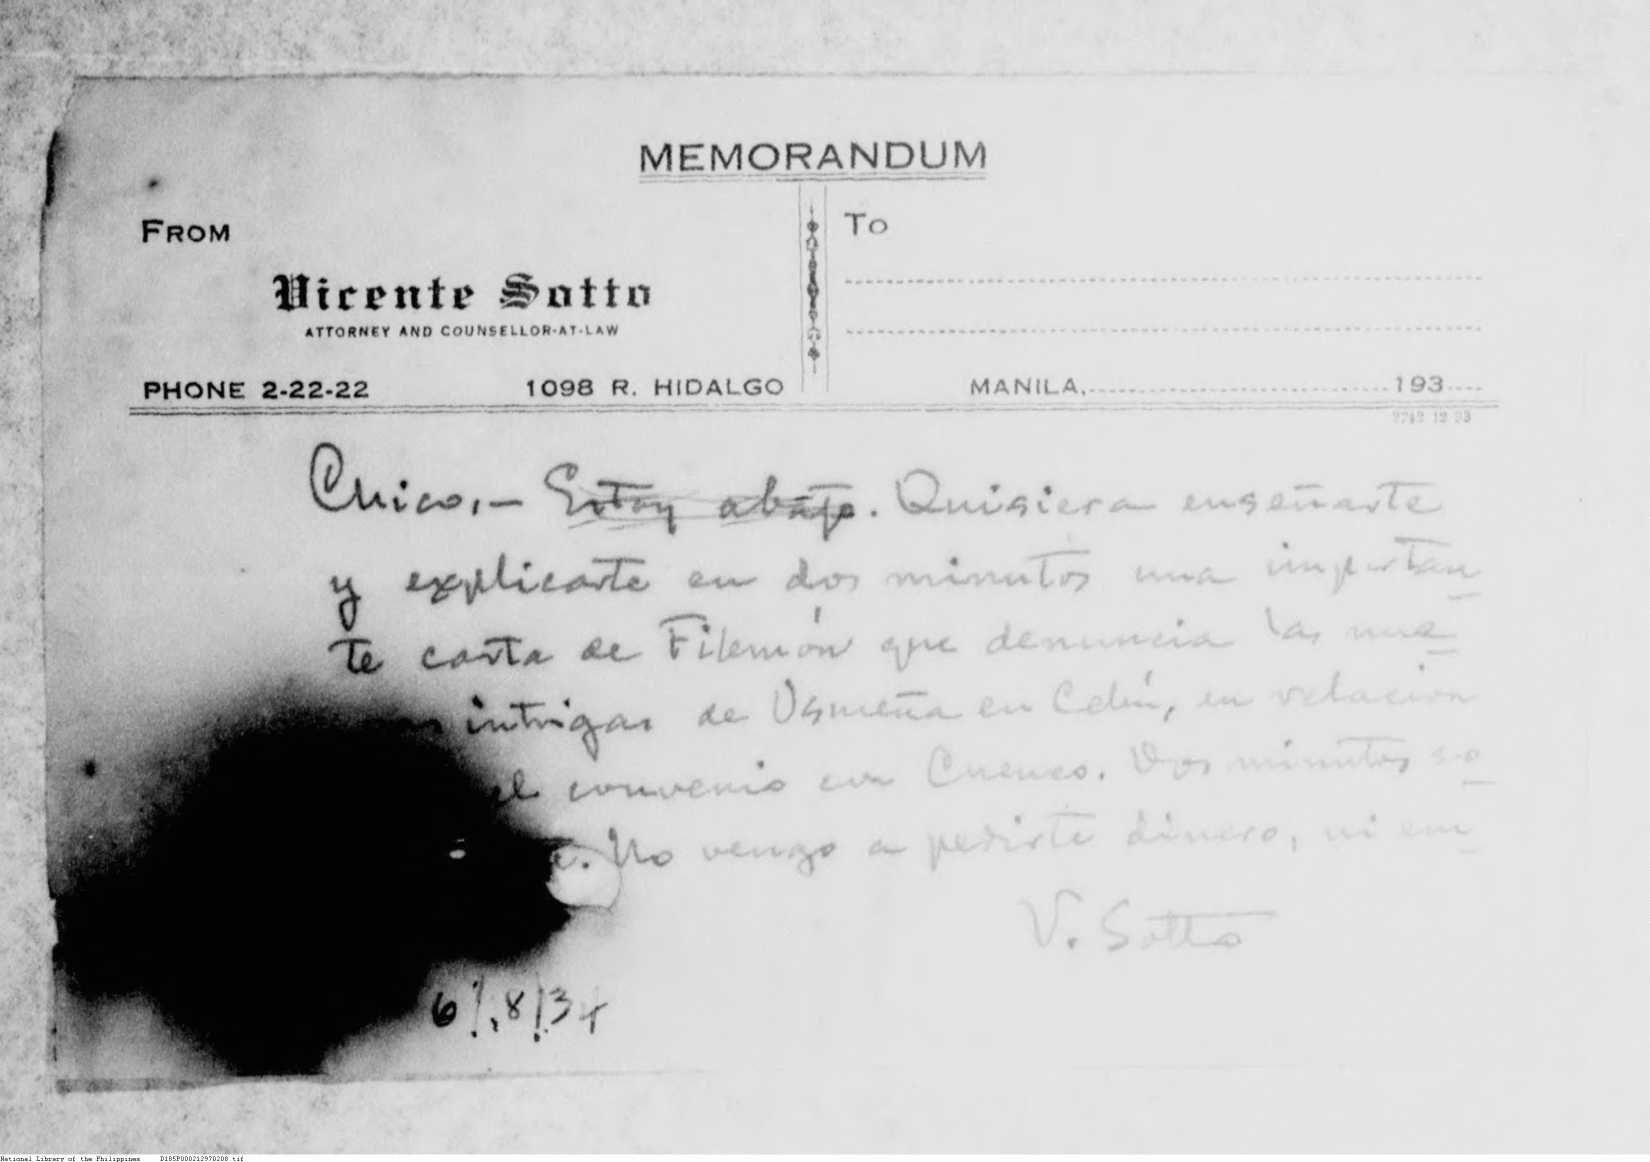 MEMORANDUM
FROM
To
Vicente Sotto
ATTORNEY AND COUNSELLOR-AT-LAW
PHONE 2-22-22 1098 R. HIDALGO
MANILA, 193
Chico,- Estoy abajo. Quisiera enseñarte
y explicarte en dos minutos una importan
te carta de Filemón que denuncia las nue
intrigas de Osmeña en Cebú, en relación
el convenio con Cuenco. Dos minutos so
No vengo a pedirte dinero, ni em
V. Sotto
6/8/34
National Library of the Philippines D185P000212970208.tif